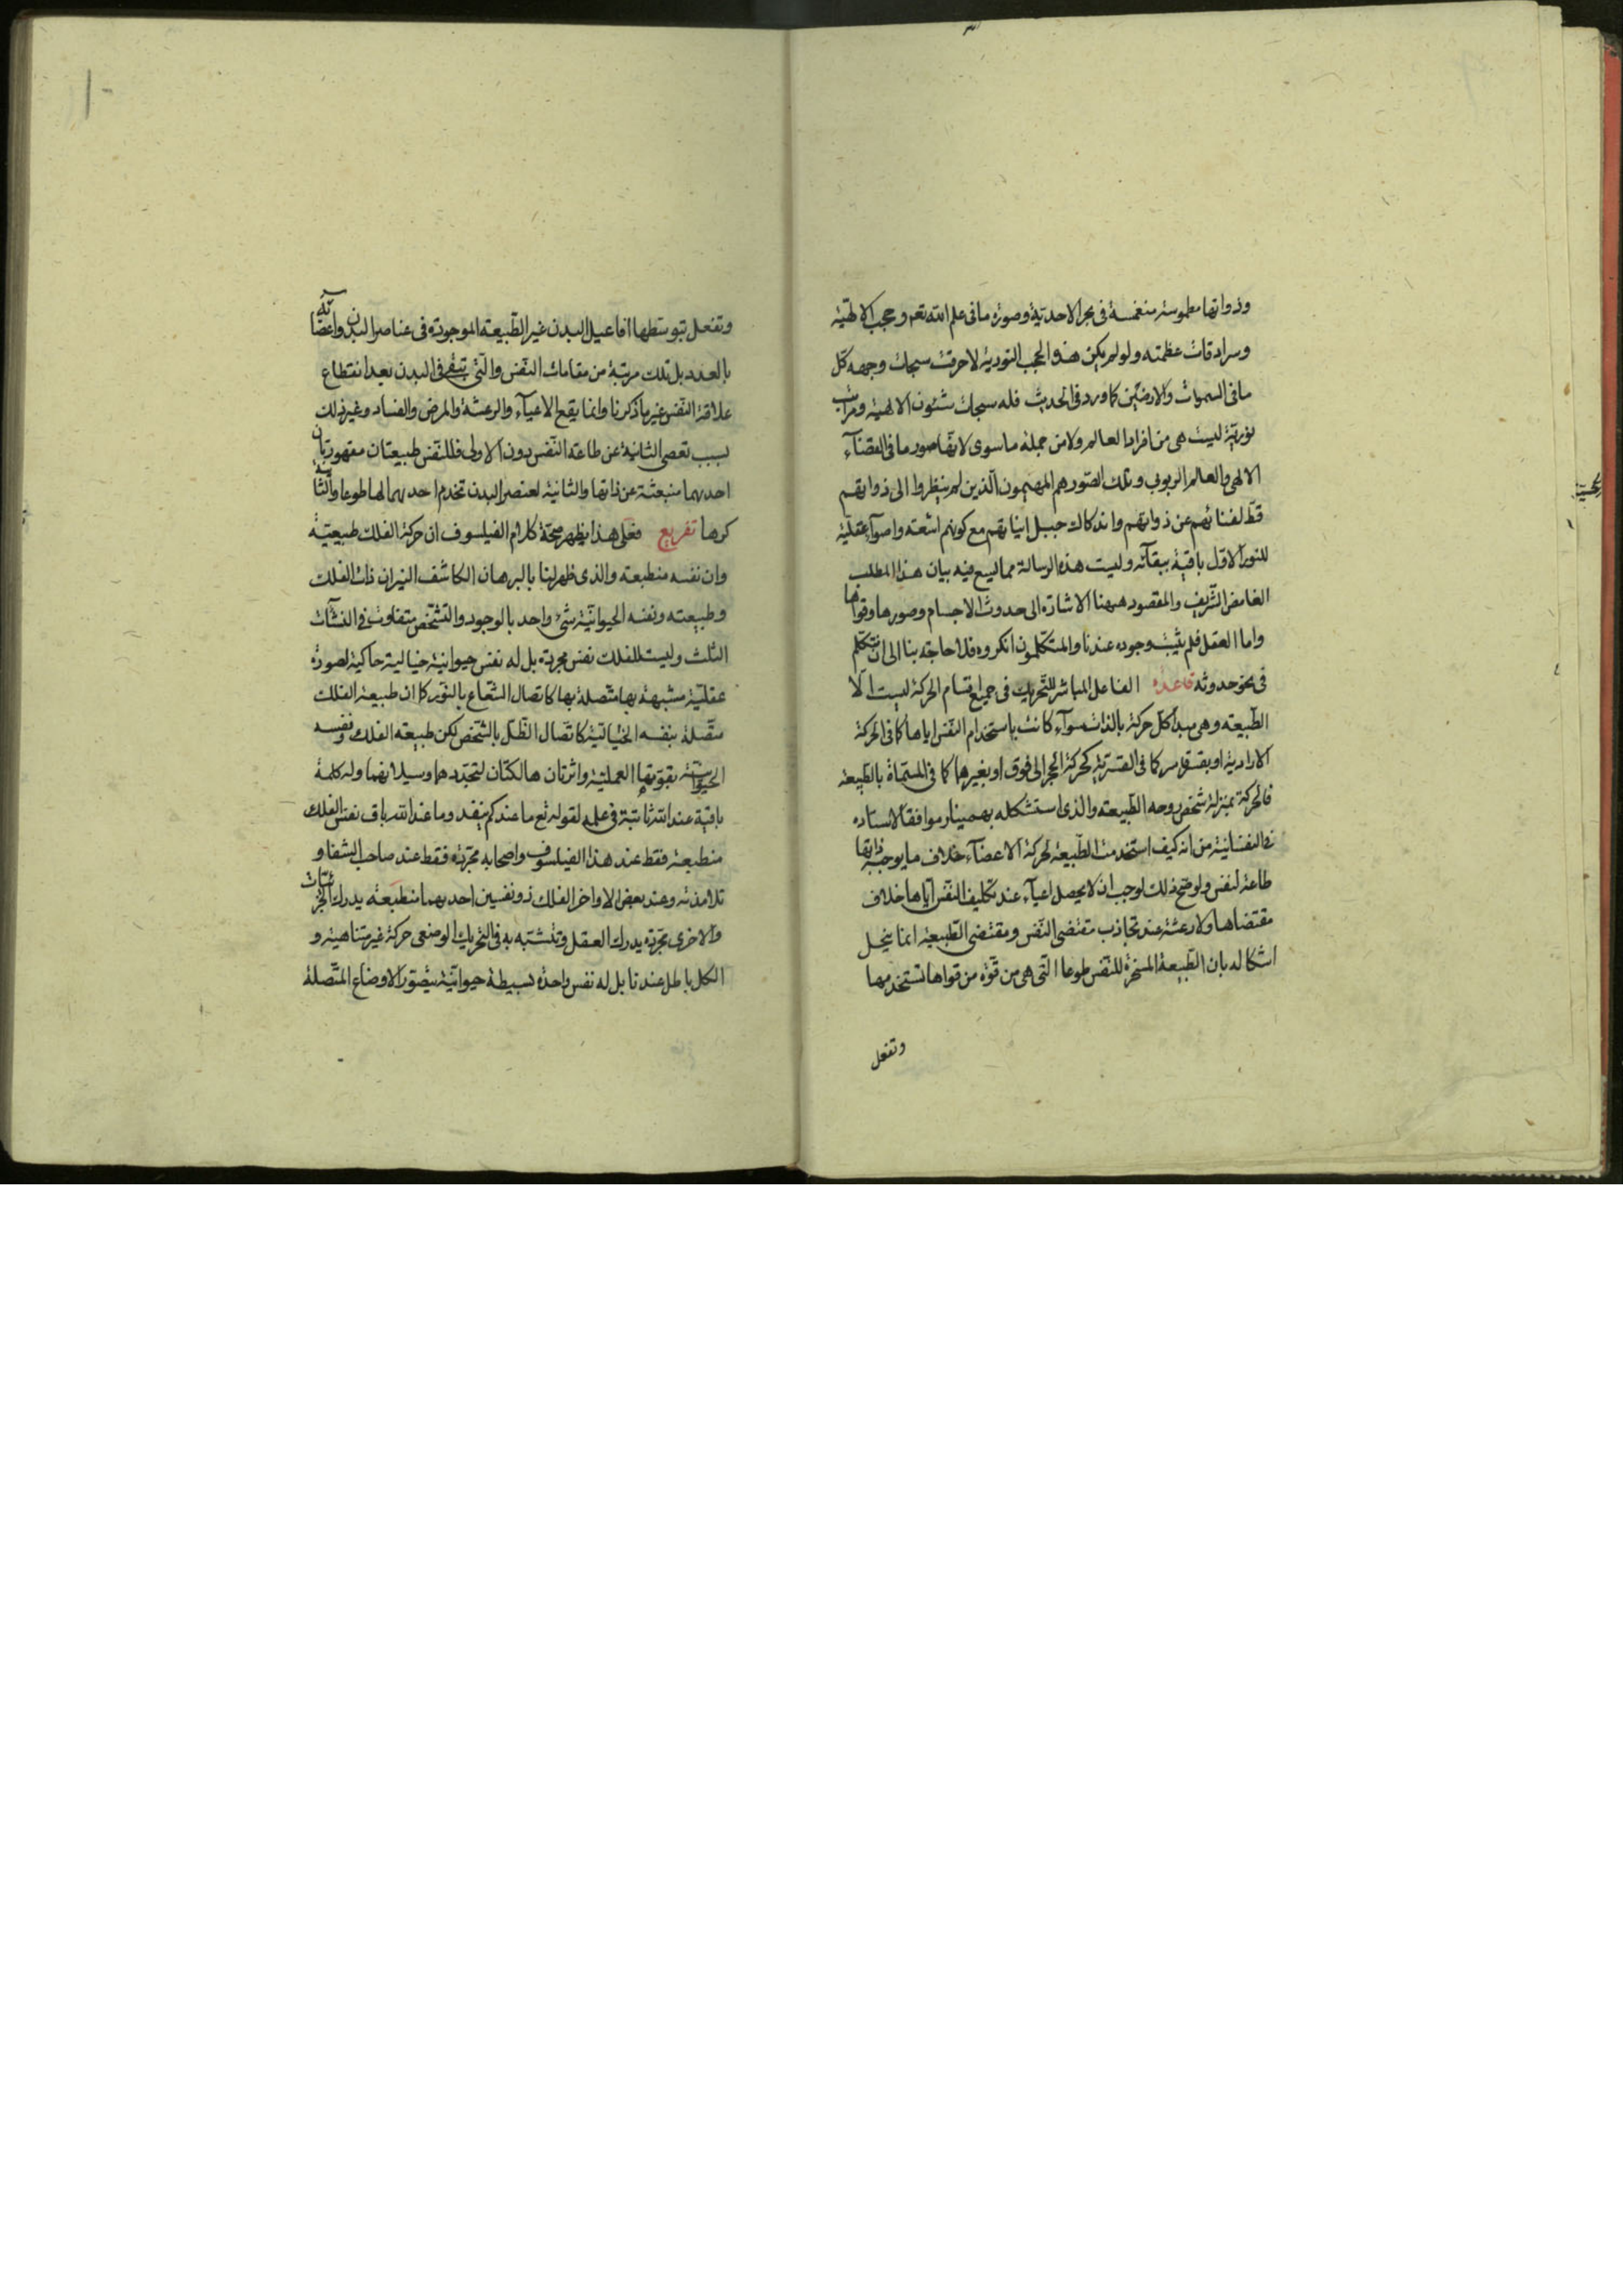 وذواتها مطموسة منغمسة فى بحر الاحدية وصورة ما فى علم الله تعم وحجب الالهية
وسرادقات عظمته ولو لم يكن هذه الحجب النورية لاحرقت سبحات وجهه كل
ما فى السموات والارضين كما ورد فى الحديث فله سبحات شئون الالهية ومراتب
نورية ليست هى من افراد العالم ولا من جملة ما سوى لانها صور ما فى القضآء
الالهى والعالم الربوبى وتلك الصور هم المهيمون الذين لم ينظروا الى ذواتهم
قط لفنائهم عن ذواتهم واندكاك جبل انياتهم مع كونهم اشعته واضوآء عقلية
للنور الاول باقية ببقآئه وليست هذه الرسالة مما ليسع فيه بيان هذا المطلب
الغامض الشريف والمقصود ههنا الاشارة الى حدوث الاجسام وصورها وقواها
واما العقل فلم يثبت وجوده عندنا والمتكلمون انكروه فلا حاجة بنا الى ان نتكلم
فى نحو حدوثه قاعدة الفاعل المباشر للتحريك فى جميع اقسام الحركة ليست الا
الطبيعة وهى مبدأ كل حركة بالذات سوآء كانت باستخدام النفس اياها كما فى الحركة
الارادية او بقسر قاسر كما فى القسرية كحركة الحجر الى فوق او بغيرها كما فى المسماة بالطبيعة
فالحركة بمنزلة شخص روحه الطبيعة والذى استشكله بهمنيار موافقا لاستاده
فى النفسانية من انه كيف استخدمت الطبيعة لحركة الاعضآء خلاف ما يوجبه ذاتها
طاعة لنفس ولو صح ذلك لوجب ان لا يحصل اعيآء عند تكليف النفس اياها خلاف
مقتضاها ولا رعشة عند تجاذب مقتضى النفس ومقتضى الطبيعة انما ينحل
اشكاله بان الطبيعة المسخرة للنفس طوعا التى هى من قوة من قواها تستخدمها
وتفعل
وتفعل بتوسطها افاعيل البدن غير الطبيعة الموجودة فى عناصر البدن واعضائه
بالعدد بل تلك مرتبة من مقامات النفس والتى تبقى فى البدن بعد انقطاع
علاقة النفس غير ما ذكرنا وانما يقع الاعيآء والرعشة والمرض والفساد وغير ذلك
بسبب تعصى الثانية عن طاعة النفس دون الاولى فللنفس طبيعتان مقهورتان
احديهما منبعثة عن ذاتها والثانية لعنصر البدن تخدم احديهما لها طوعا والثانية
كرها تفريع فعلى هذا يظهر صحة كلام الفيلسوف ان حركة الفلك طبيعية
وان نفسه منطبعة والذى ظهر لنا بالبرهان الكاشف النير ان ذات الفلك
وطبيعته ونفسه الحيوانية شئ واحد بالوجود والتشخص متفاوت فى النشآت
الثلث وليست للفلك نفس مجردة بل له نفس حيوانية خيالية حاكية لصورة
عقلية مشبهة بها متصلة بها كاتصال الشعاع بالنور كما ان طبيعة الفلك
متصلة بنفسه الخيالية كاتصال الظل بالشخص لكن طبيعة الفلك ونفسه
الحيوانية بقوتها العملية واثرتان هالكتان لتجددهما وسيلانهما وله كلمة
باقية عند الله ثابتة فى علمه لقوله تع ما عندكم ينفد وما عند الله باق نفس الفلك
منطبعة فقط عند هذا الفيلسوف واصحابه مجردة فقط عند صاحب الشفا و
تلامذته وعند بعض الاواخر الفلك ذو نفسين احديهما منطبعة يدرك الجزئيات
والاخرى مجردة يدرك العقل وتتشبه به فى التحريك الوضعى حركة غير متناهية و
الكل باطل عندنا بل له نفس واحدة بسيطة حيوانية يتصور الاوضاع المتصلة